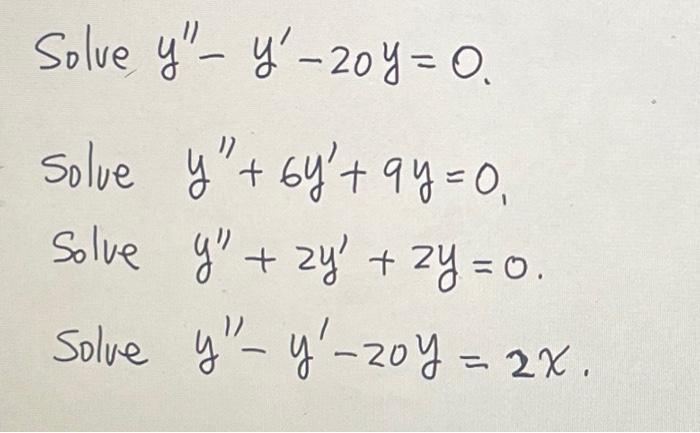 Solve y'' - y' - 20y = 0.
Solve y'' + 6y' + 9y = 0,
Solve y'' + 2y' + 2y = 0.
Solve y'' - y' - 20y = 2x.